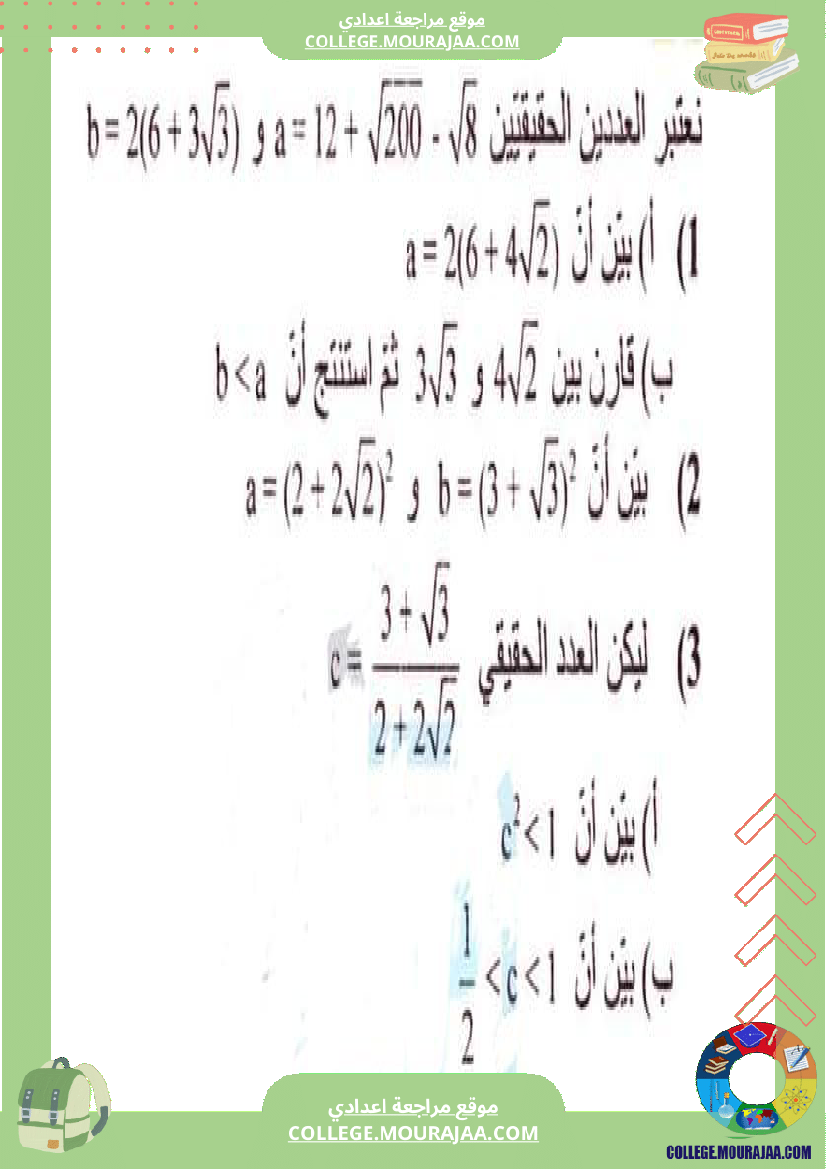 موقع مراجعة اعدادي
COLLEGE.MOURAJAA.COM
نعتبر العددين الحقيقيين a = 12 + √200 - √8 و b = 2(6 + 3√3)
1) أ) بيّن أنّ a = 2(6 + 4√2)
ب) قارن بين 4√2 و 3√3 ثمّ استنتج أنّ b < a
2) بيّن أنّ b = (3 + √3)² و a = (2 + 2√2)²
3) ليكن العدد الحقيقي c = (3 + √3)/(2 + 2√2)
أ) بيّن أنّ c² < 1
ب) بيّن أنّ 1/2 < c < 1
موقع مراجعة اعدادي
COLLEGE.MOURAJAA.COM
COLLEGE.MOURAJAA.COM